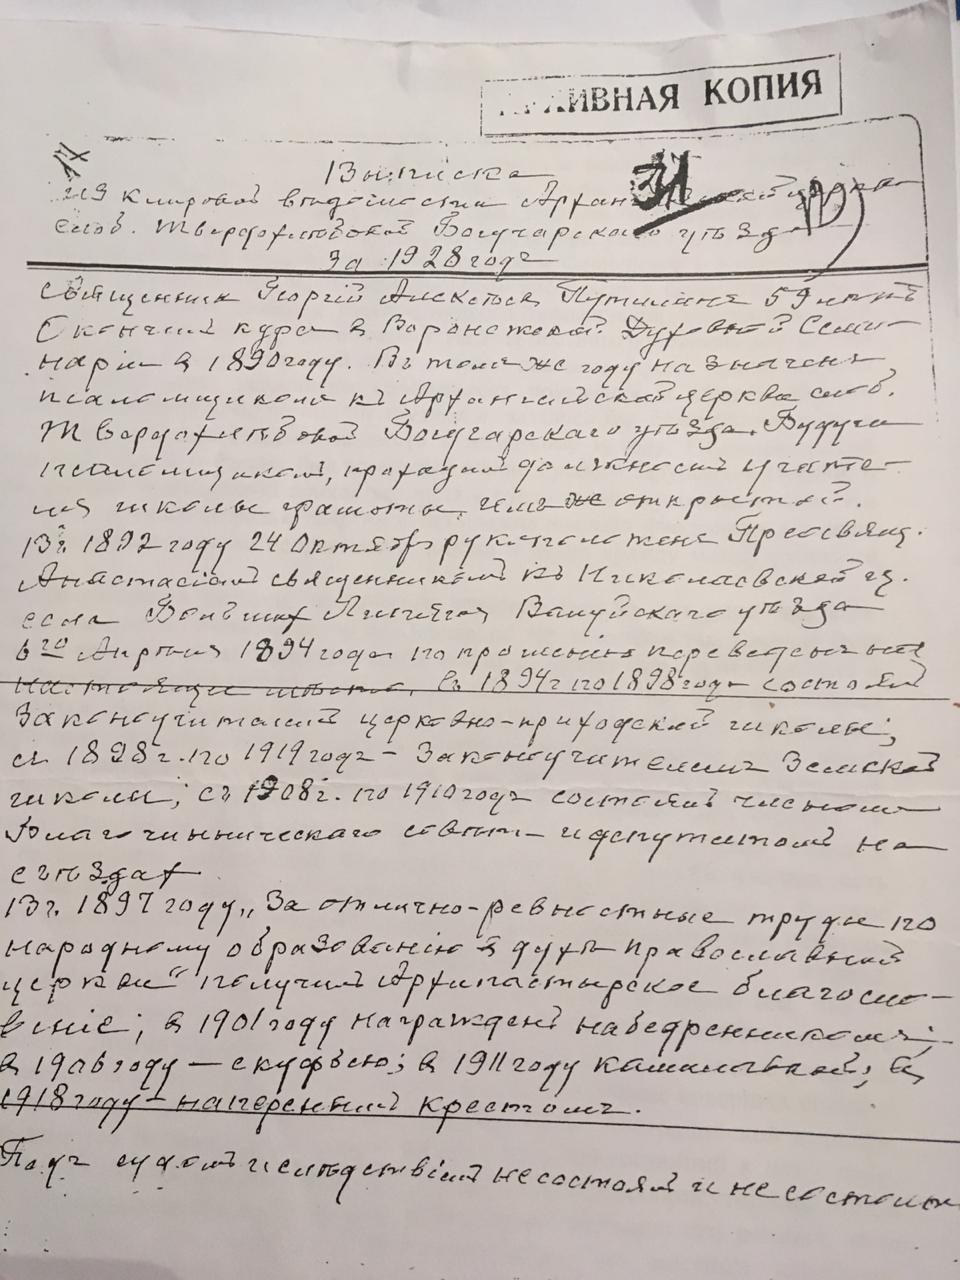 АРХИВНАЯ КОПИЯ
31
Выписка
из клировой ведомости Архангельской церкви
слоб. Твердохлѣбовой Богучарскаго уѣзда
за 1928 годъ
Священник Георгій Алексѣевъ Путилинъ 59 лѣтъ
Окончил курсъ в Воронежской Духовной Семи-
наріи в 1890 году. Въ томъ же году назначенъ
псаломщикомъ къ Архангельской церкви слоб.
Твердохлѣбовой Богучарскаго уѣзда. Будучи
псаломщиком, проходил должность учите-
ля школы грамоты, им же открытой.
Въ 1892 году 24 Октября рукоположенъ Преосвящ.
Анастасіем священником къ Николаевской ц.
села Больших Валуйскаго уѣзда
6го Апрѣля 1894 года по прошенію переведенъ на
настоящее мѣсто. Съ 1894 г по 1898 годъ состоял
Законоучителем церковно-приходской школы;
съ 1898 г. по 1919 годъ – Законоучителемъ Земской
школы; съ 1908 г. по 1910 годъ состоялъ членомъ
Благочинническаго совѣта и депутатом на
съѣздах.
Въ 1897 году „За отлично-ревностные труды по
народному образованію в духѣ Православной
церкви" получил Архипастырское благосло-
веніе; в 1901 году награжденъ набедренникомъ;
в 1906 году – скуфьею; в 1911 году камилавкой; в
1918 году – наперсным крестомъ.
Подъ судом и слѣдствіем не состоял и не состоитъ